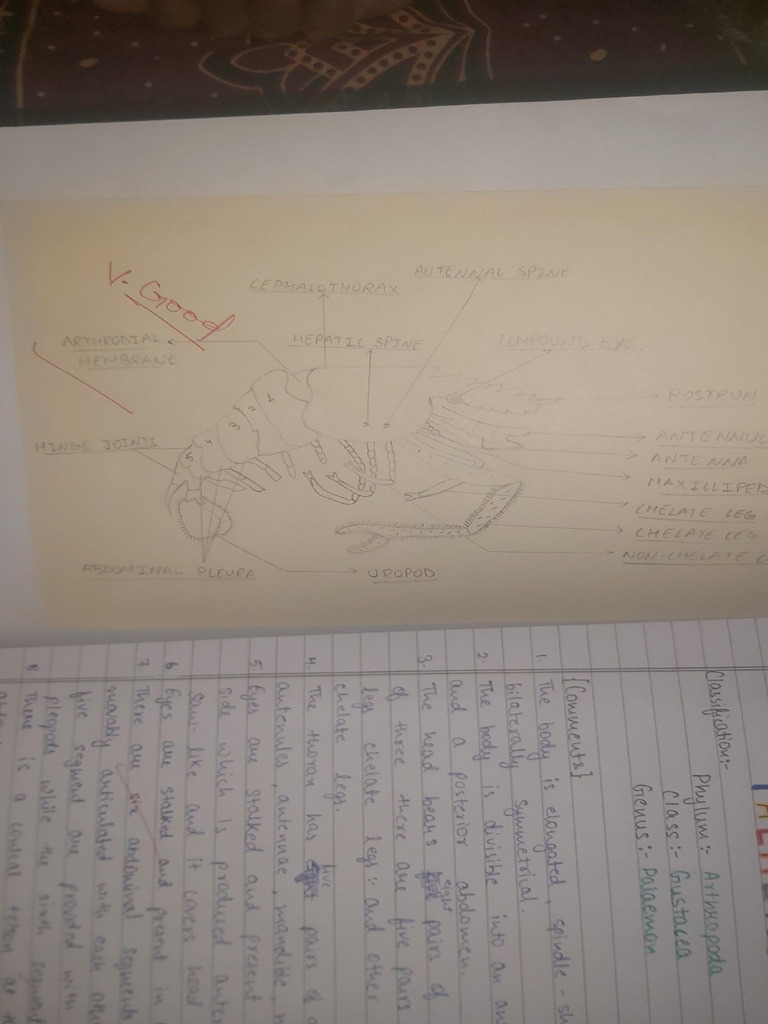 V. Good
ANTENNAL SPINE
CEPHALOTHORAX
ARTHRODIAL
MEMBRANE
HEPATIC SPINE
COMPOUND EYE
ROSTRUM
ANTENNUL
ANTENNA
MAXILLIPED
CHELATE LEG
CHELATE LEG
NON-CHELATE
HINGE JOINTS
ABDOMINAL PLEURA
UROPOD
Classification:-
Phylum:- Arthropoda
Class:- Crustacea
Genus:- Palaemon
[Comments]
1. The body is elongated, spindle-sh
bilaterally symmetrical.
2. The body is divisible into an an
and a posterior abdomen.
3. The head bears eight pairs of
of three there are five pairs
legs chelate legs:- and other
chelate legs.
4. The thorax has five pairs of
antenules, antennae, mandible,
5. Eyes are stalked and present
side which is produced anter
saw-like and it covers head
6 Eyes are stalked and present in
7. There are six abdominal segments
movably articulated with each oth
five segment are provided with
pleopods while the sixth segment
8 There is a conical telson at